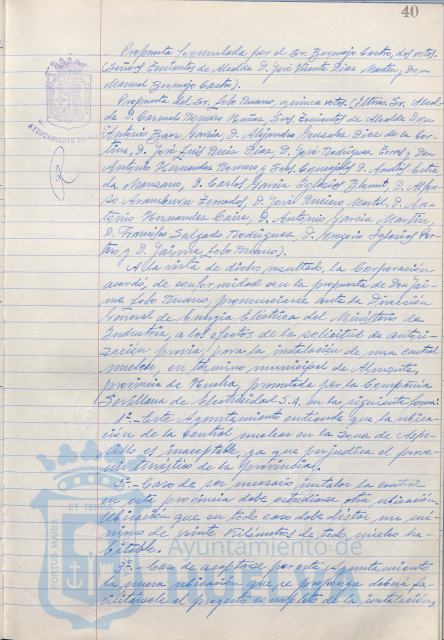 40
Propuesta formulada por el Sr. Bermejo Castro, dos votos.
(Señores Tenientes de Alcalde D. José Vicente Díaz Martín y Don
Manuel Bermejo Castro).
Propuesta del Sr. Lobo Ruano, quince votos. (Iltmo. Sr. Alcal-
de D. Carmelo Romero Núñez, Sres. Tenientes de Alcalde Don
Antonio García, D. Alejandro González Díez de la Cor-
tina, D. José Luis Ruiz Díaz, D. José Rodríguez y Don
Antonio Hernández Romero y Sres. Concejales D. Andrés Estra-
da Manzano, D. Carlos García Iglesias D. Alfon-
so Aramburu Terrades, D. José Martel, D. An-
tonio Hernández Caire, D. Antonio García Martín,
D. Francisco Salgado Rodríguez, D. Iglesias
y D. Jaime Lobo Ruano).
A la vista de dicho resultado, la Corporación
acordó, de conformidad con la propuesta de Don Jai-
me Lobo Ruano, pronunciarse ante la Dirección
General de Energía Eléctrica del Ministerio de
Industria, a los efectos de la solicitud de autori-
zación previa, para la instalación de una central
nuclear, en término municipal de Almonte,
provincia de Huelva, presentada por la Compañía
Sevillana de Electricidad S.A. en la siguiente forma:
1º.- Este Ayuntamiento entiende que la ubica-
ción de la Central nuclear en la zona de Aspe-
rillo es inaceptable, ya que perjudica el porve-
nir turístico de la Provincia.
2º.- Caso de ser necesario instalar la central
en esta provincia debe estudiarse otra ubicación.
Ubicación que en todo caso debe distar un mí-
nimo de veinte Kilómetros de todo núcleo ha-
bitable.
3º.- Caso de aceptarse por este Ayuntamiento
la nueva ubicación que se proponga deberá fa-
cilitársele el proyecto completo de la instalación,
AYUNTAMIENTO DE
PORTUS MARIS
ET TERRAE
Ayuntamiento de
HUELVA